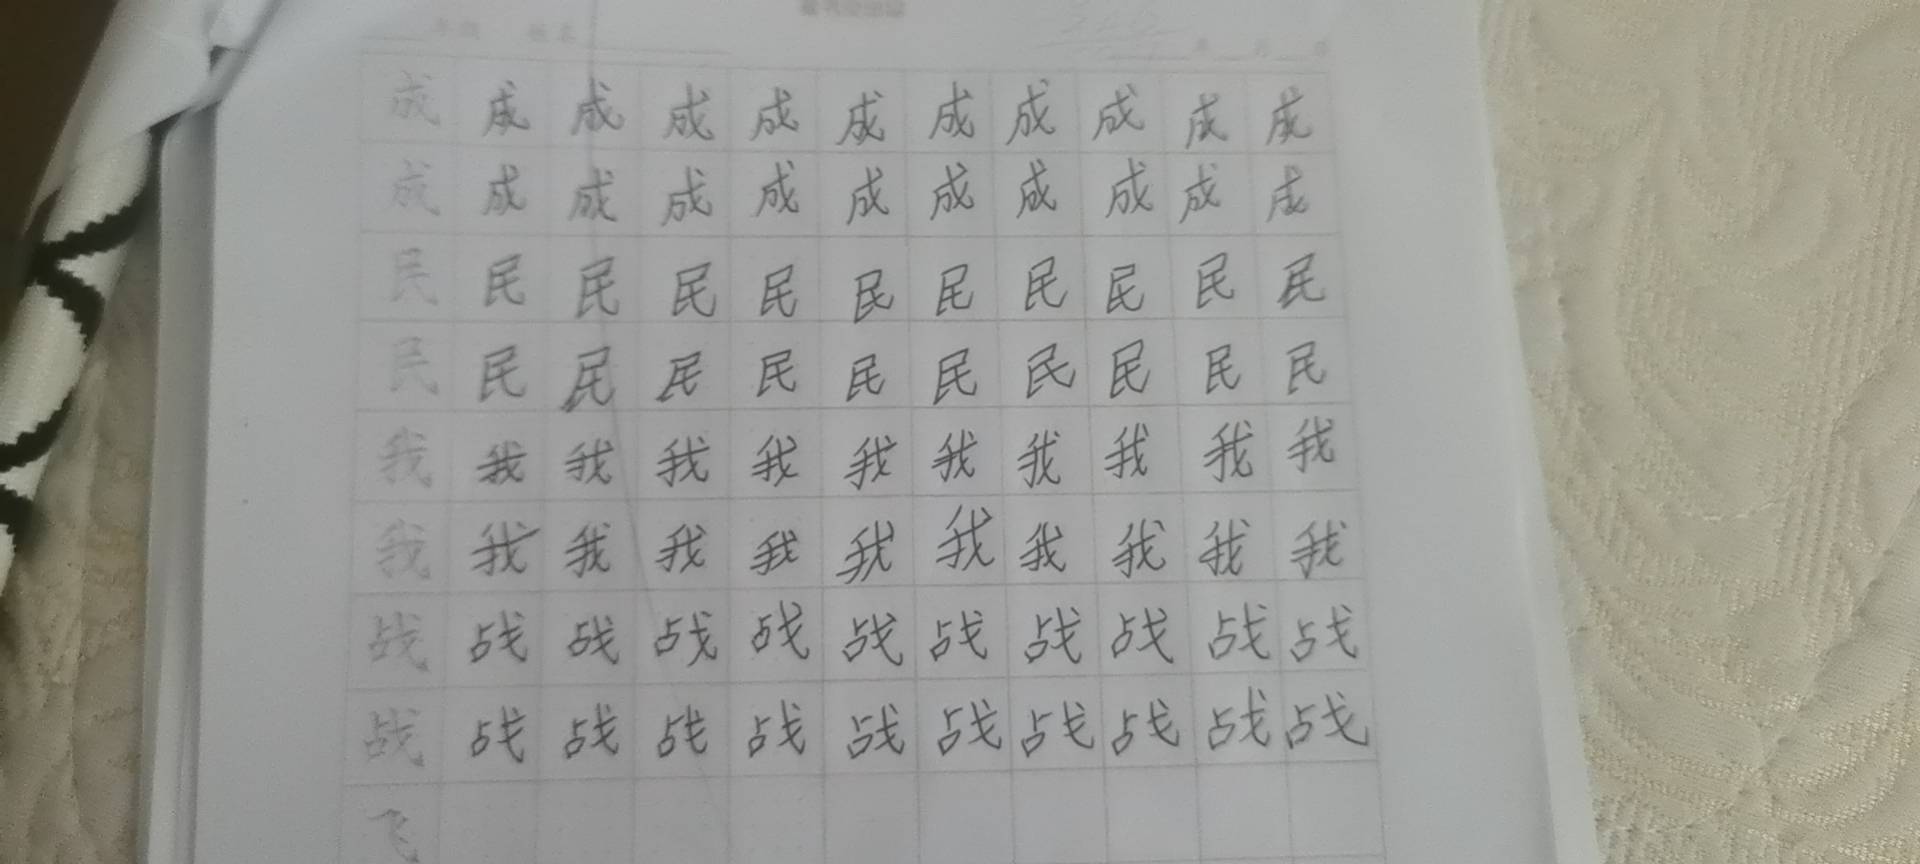 成 成 成 成 成 成 成 成 成 成 成
成 成 成 成 成 成 成 成 成 成 成
民 民 民 民 民 民 民 民 民 民 民
民 民 民 民 民 民 民 民 民 民 民
我 我 我 我 我 我 我 我 我 我 我
我 我 我 我 我 我 我 我 我 我 我
战 战 战 战 战 战 战 战 战 战 战
战 战 战 战 战 战 战 战 战 战 战
飞